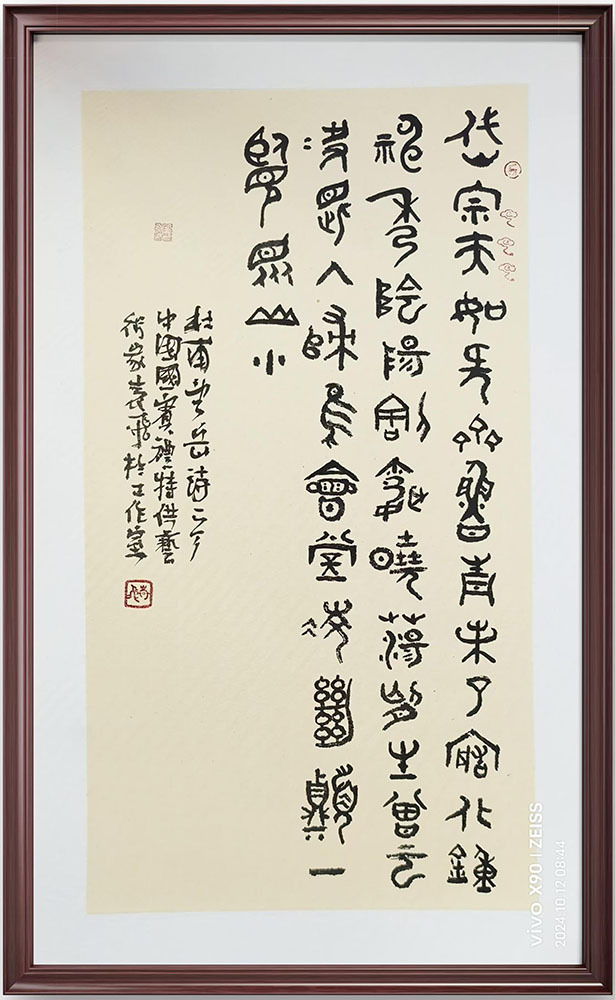 岱宗夫如何齊魯青未了造化鍾
神秀陰陽割昏曉蕩胸生曾雲
決眥入歸鳥會當凌絕頂一
覽眾山小
杜甫望岳詩
中国國賓禮特供藝
術家袁飛於工作室
vivo X90 | ZEISS
2024.10.12 08:44